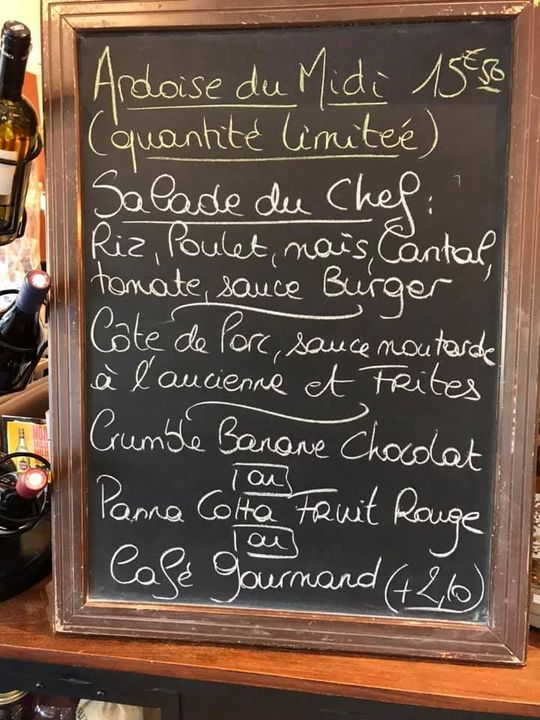 Ardoise du Midi 15€50
(quantité limitée)
Salade du Chef :
Riz, Poulet, maïs, Cantal,
tomate, sauce Burger
Côte de Porc, sauce moutarde
à l'ancienne et Frites
Crumble Banane Chocolat
ou
Panna Cotta Fruit Rouge
ou
Café gourmand (+2,10)